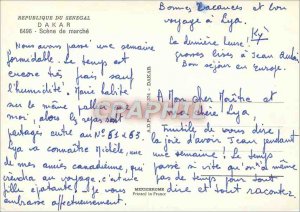 REPUBLIQUE DU SENEGAL
DAKAR
8496 - Scène de marché
Nous avons passé une semaine
formidable. Le temps est
encore très frais sauf
l'humidité. Marie
sur le même palier
moi, alors les repas sont
partagés entre au N° 61 & 63.
Lya va connaître Michèle, une
de mes amies canadienne, qui
viendra au voyage, c'est une
fille épatante. Je vous
embrasse affectueusement.
Bonnes vacances et bon
voyage à Lya.
La dernière
grosses bises à Jean
Bon séjour en Europe.
A Mon cher Maître et
ma chère Lya
Inutile de vous dire
la joie d'avoir Jean pendant
une semaine. Le temps
passe si vite qu'on a même
pas de temps pour tout
dire et tout raconter.
DAKAR
MEXICHROME
Printed in France